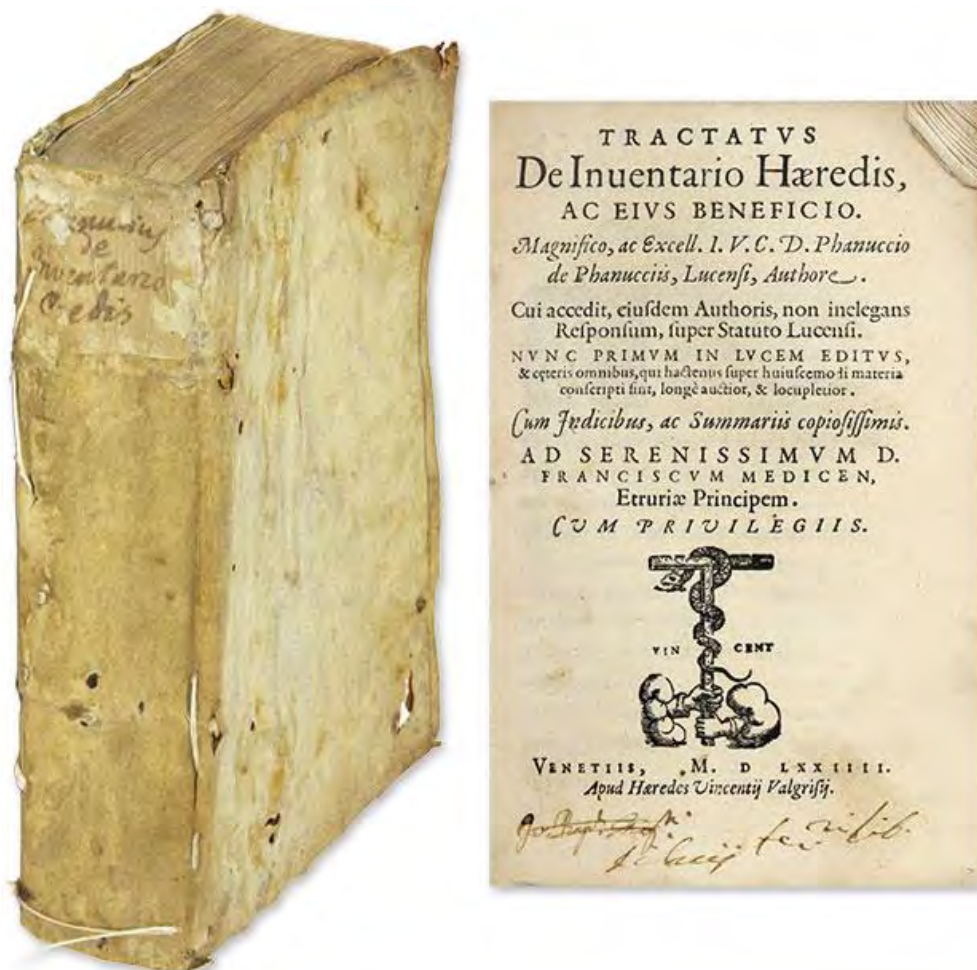 de
Inventario
TRACTATVS
De Inuentario Hæredis,
AC EIVS BENEFICIO.
Magnifico, ac Excell. I. V. C. D. Phanuccio
de Phanucciis, Lucensi, Authore.
Cui accedit, eiuſdem Authoris, non inelegans
Reſponſum, ſuper Statuto Lucenſi.
NVNC PRIMVM IN LVCEM EDITVS,
& cęteris omnibus, qui hactenus ſuper huiuſcemodi materia
conſcripti ſint, longè auctior, & locupletior.
Cum Indicibus, ac Summariis copioſiſſimis.
AD SERENISSIMVM D.
FRANCISCVM MEDICEN,
Etruriæ Principem.
CVM PRIVILEGIIS.
VIN CENT
VENETIIS, M. D LXXIIII.
Apud Hæredes Vincentij Valgriſij.